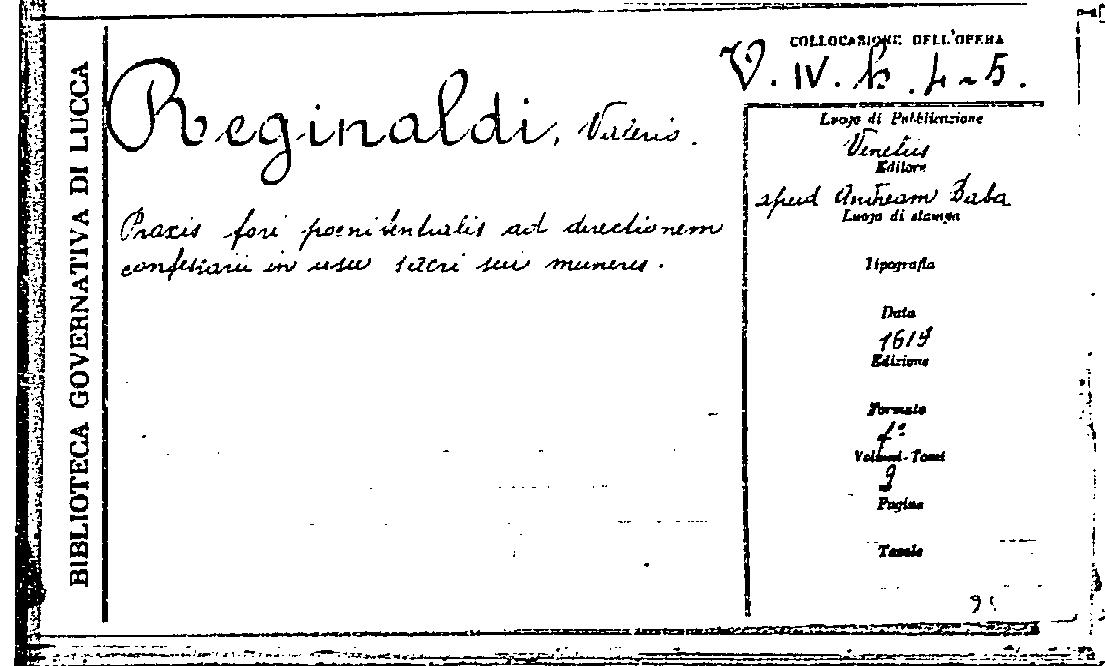 BIBLIOTECA GOVERNATIVA DI LUCCA
Reginaldi, Valerio.
Praxis fori poenitentialis ad directionem
confessarii in usu sacri sui muneris.
COLLOCAZIONE DELL'OPERA
V. IV. b. 4-5.
Luogo di Pubblicazione
Venetiis
Editore
apud Andream Baba
Luogo di stampa
Tipografia
Data
Edizione
Formato
Volumi-Tomi
2
Pagine
Tavole